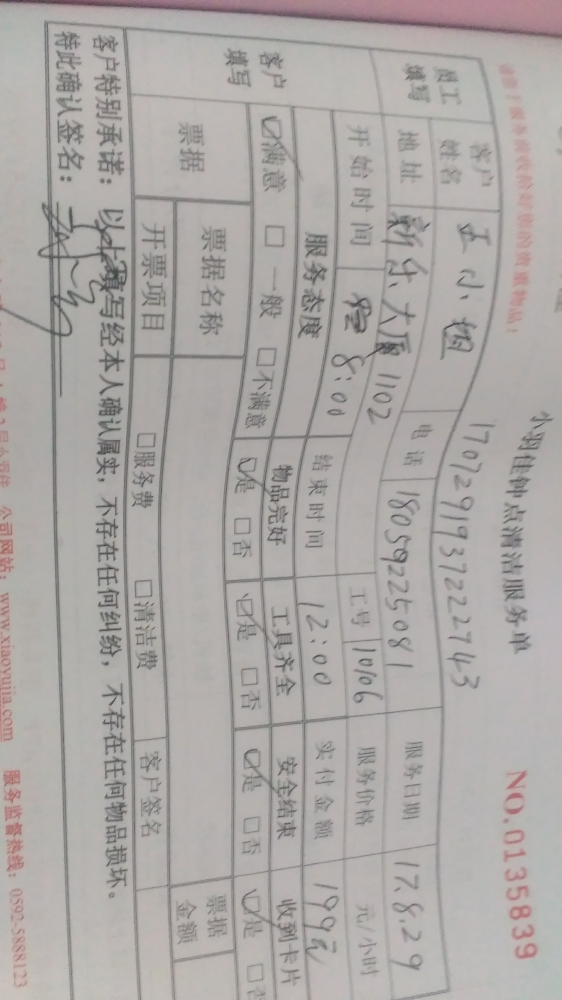 小羽佳钟点清洁服务单
NO.0135839
1707291937222743
员工填写 客户姓名 王小姐 电话 18059225081 服务日期 17.8.29
地址 新乐大厦1102 工号 10106 服务价格 元/小时
开始时间 8:00 结束时间 12:00 实付金额 199元
客户填写 服务态度 物品完好 工具齐全 安全结束 收到卡片
☑满意 □一般 □不满意 ☑是 □否 ☑是 □否 ☑是 □否 ☑是 □否
票据 票据名称 票据金额
开票项目 □服务费 □清洁费 客户签名
客户特别承诺：以上填写经本人确认属实，不存在任何纠纷，不存在任何物品损坏。
特此确认签名：
公司网站：www.xiaoyujia.com 服务监督热线：0592-5888123